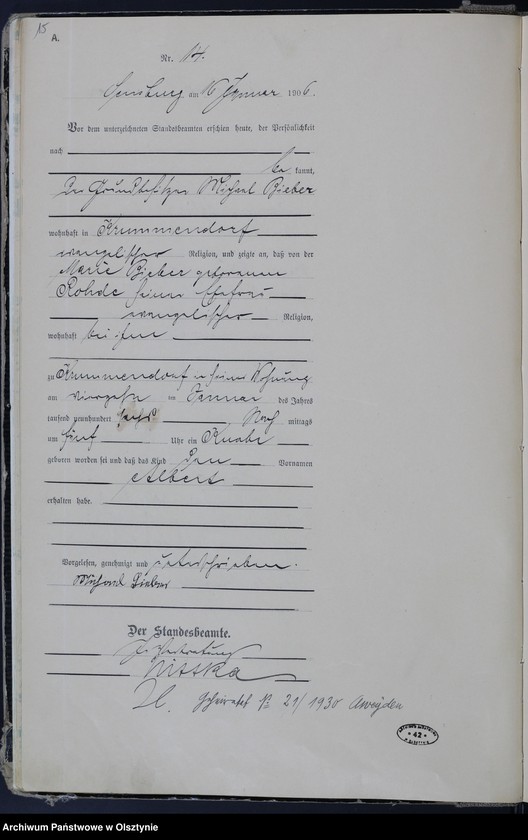 15
A.
Nr. 14.
Sensburg am 16 Januar 1906.
Vor dem unterzeichneten Standesbeamten erschien heute, der Persönlichkeit
nach
be kannt,
der Grundbesitzer Michael Bieber
wohnhaft in Krummendorf
evangelischer Religion, und zeigte an, daß von der
Marie Bieber geborenen
Rohde seiner Ehefrau
evangelischer Religion,
wohnhaft bei ihm
zu Krummendorf in seiner Wohnung
am vierzehn ten Januar des Jahres
tausend neunhundert sechs Nach mittags
um fünf Uhr ein Knabe
geboren worden sei und daß das Kind den Vornamen
Albert
erhalten habe.
Vorgelesen, genehmigt und unterschrieben.
Michael Bieber
Der Standesbeamte.
In Vertretung
Nisska
H. Geheiratet № 21/1930 Aweyden
42
Archiwum Państwowe w Olsztynie